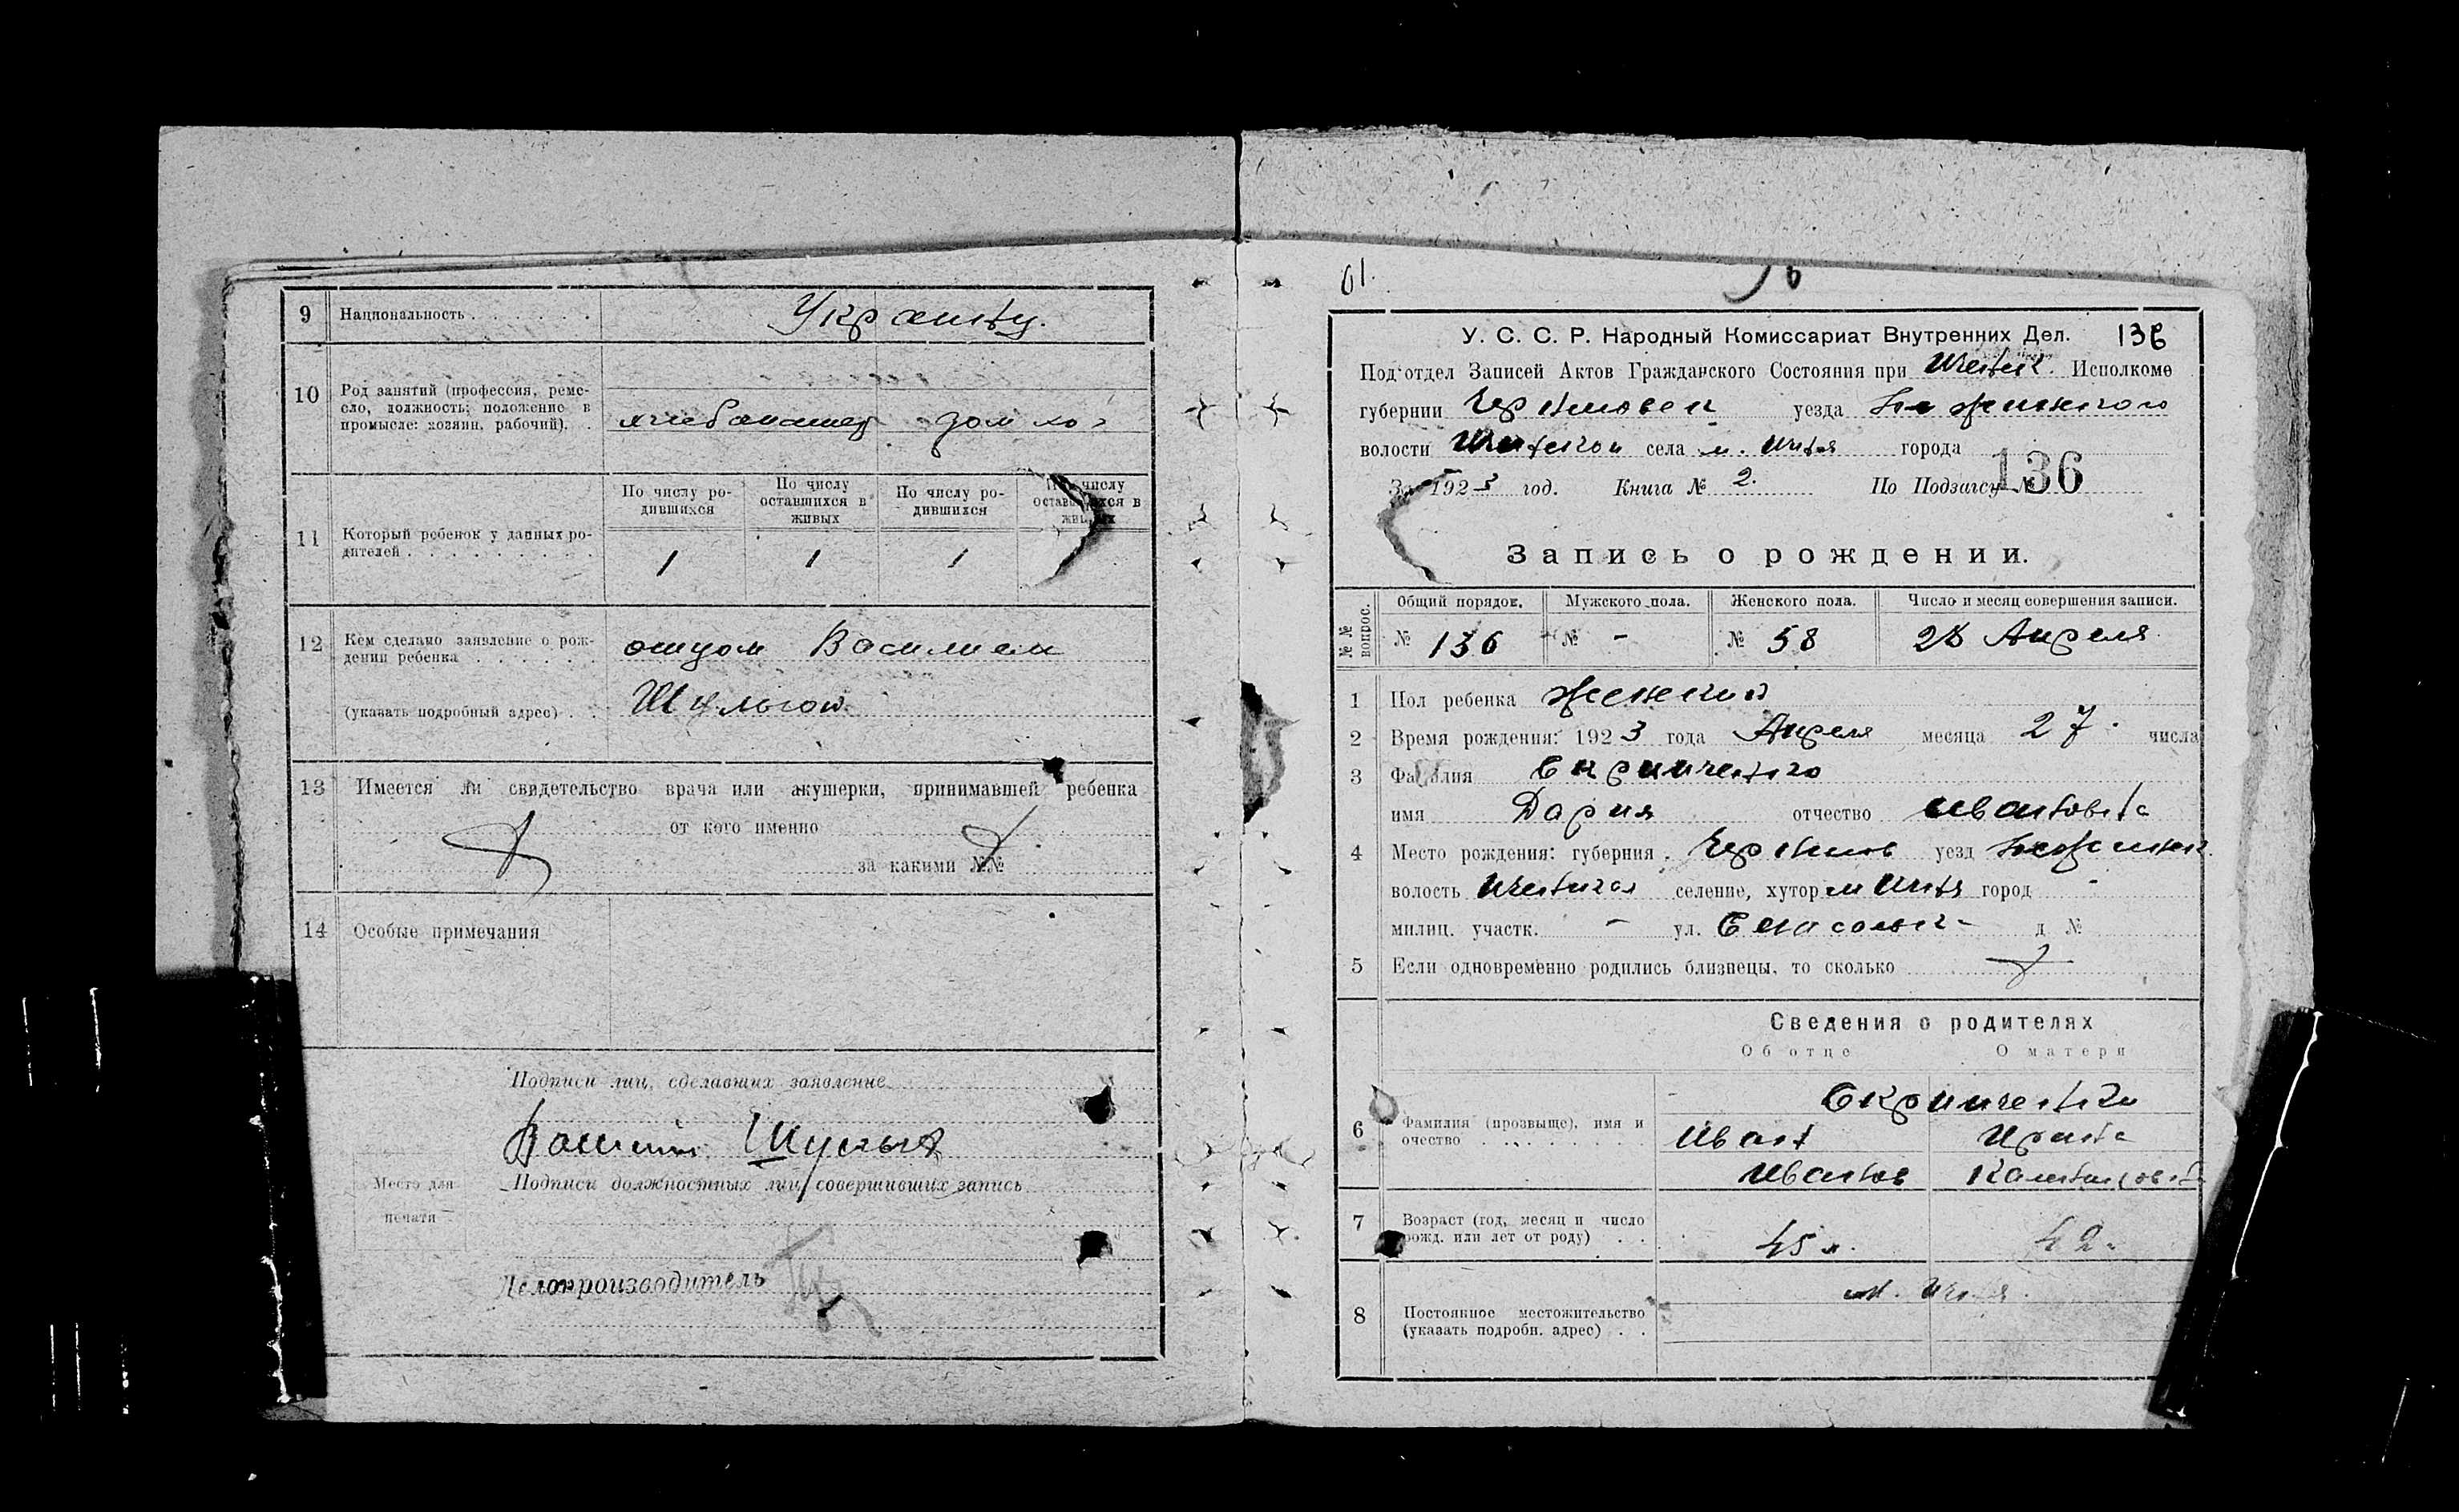 9 Национальность Украинц.
10 Род занятий (профессия, ремесло, должность; положение в промысле: хозяин, рабочий). хлебопашец дом хоз
11 Который ребенок у данных родителей
По числу родившихся
По числу оставшихся в живых
По числу родившихся
По числу оставшихся в живых
1 1 1
12 Кем сделано заявление о рождении ребенка отцом Василием
(указать подробный адрес) Шульгой
13 Имеется ли свидетельство врача или акушерки, принимавшей ребенка
от кого именно
за какими №№
14 Особые примечания
Подписи лиц, сделавших заявление
Василий Шульга
Место для печати
Подписи должностных лиц, совершивших запись
Делопроизводитель
61.
У. С. С. Р. Народный Комиссариат Внутренних Дел. 136
Под‘отдел Записей Актов Гражданского Состояния при Ичнянск. Исполкоме
губернии Чернигов уезда Нежинского
волости Ичнянской села м. Ичня города
За 1923 год. Книга № 2. По Подзагсу № 136
Запись о рождении.
№№ вопрос.
Общий порядок. Мужского пола. Женского пола. Число и месяц совершения записи.
№ 136 № - № 58 28 Апреля
1 Пол ребенка женский
2 Время рождения: 1923 года Апреля месяца 27 числа
3 Фамилия Скрипченко
имя Дария отчество Ивановна
4 Место рождения: губерния Чернигов уезд Нежинск
волость Ичнянская селение, хутор м Ичня город -
милиц. участк. - ул. д №
5 Если одновременно родились близнецы, то сколько
Сведения о родителях
Об отце О матери
6 Фамилия (прозвыще), имя и очество
Скрипченко
Иван Ирина
Иванов
7 Возраст (год, месяц и число рожд. или лет от роду) 45 л. 42
8 Постоянное местожительство (указать подробн. адрес) м. Ичня